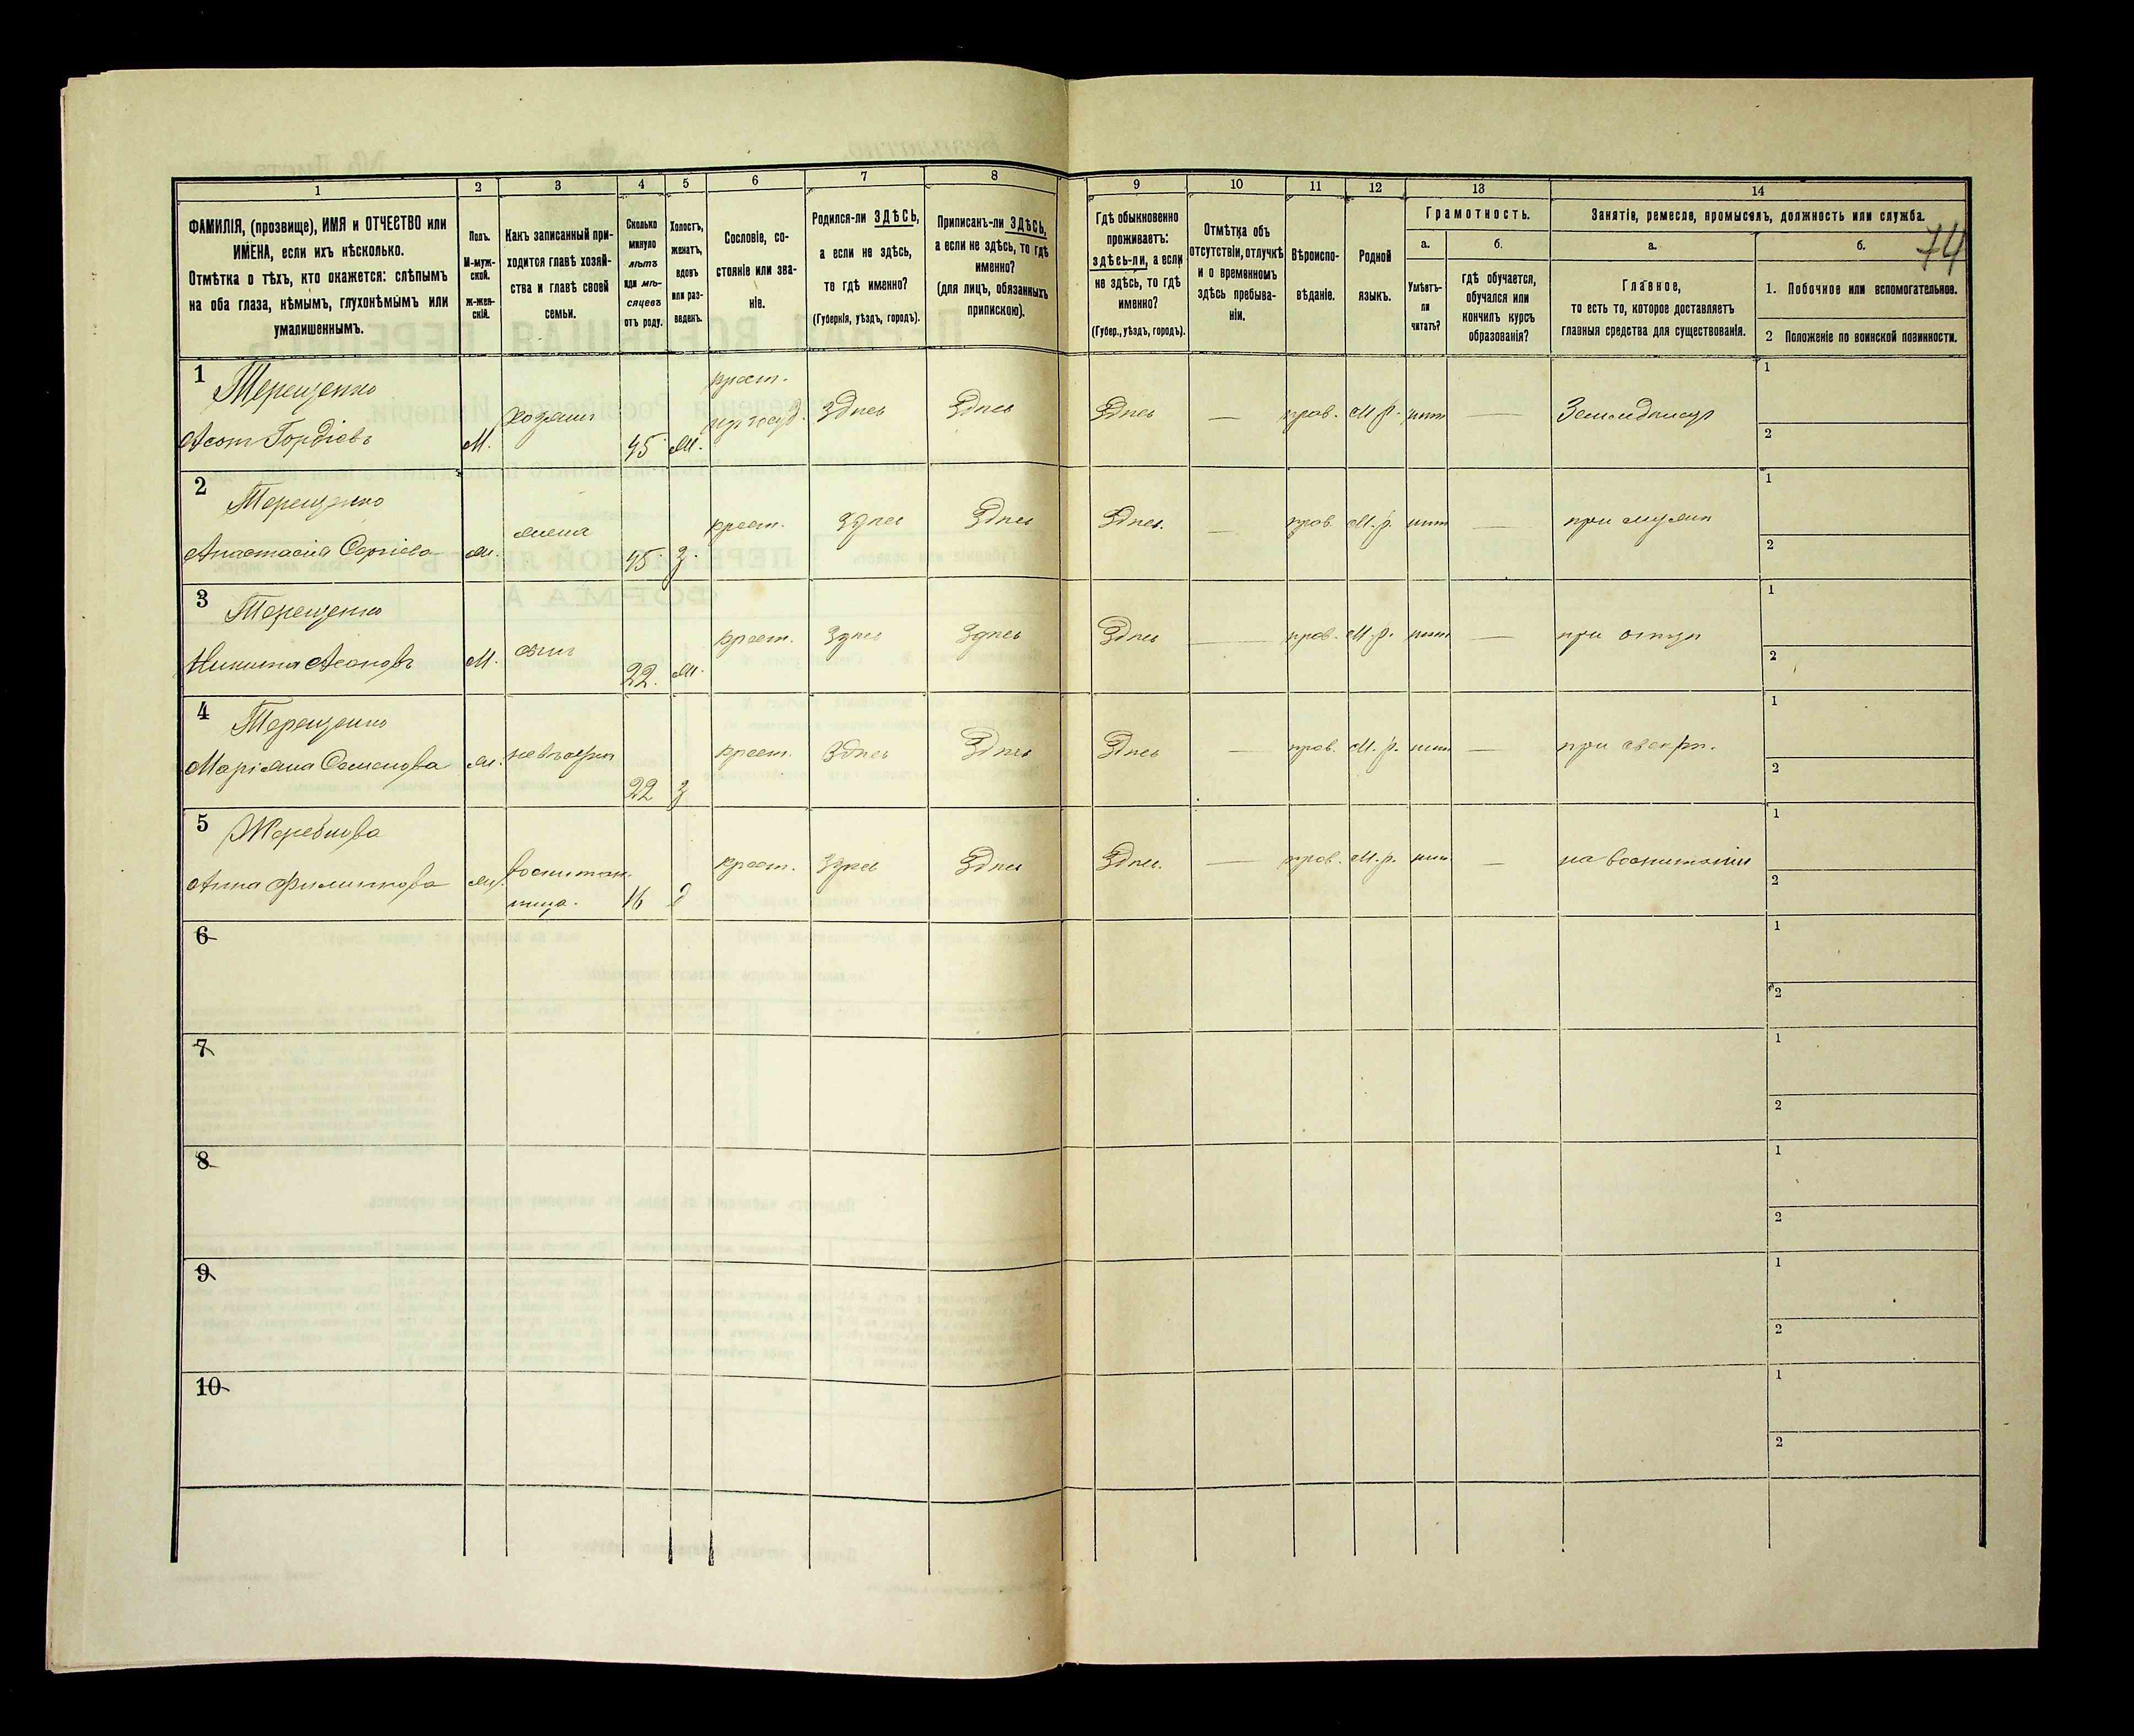 1 2 3 4 5 6 7 8 9 10 11 12 13 14
ФАМИЛІЯ, (прозвище), ИМЯ и ОТЧЕСТВО или
ИМЕНА, если ихъ нѣсколько.
Отмѣтка о тѣхъ, кто окажется: слѣпымъ
на оба глаза, нѣмымъ, глухонѣмымъ или
умалишеннымъ.
Полъ.
М-муж-
ской.
Ж-жен-
скій.
Какъ записанный при-
ходится главѣ хозяй-
ства и главѣ своей
семьи.
Сколько
минуло
лѣтъ
или мѣ-
сяцевъ
отъ роду.
Холостъ,
женатъ,
вдовъ
или раз-
веденъ.
Сословіе, со-
стояніе или зва-
ніе.
Родился-ли ЗДѢСЬ,
а если не здѣсь,
то гдѣ именно?
(Губернія, уѣздъ, городъ).
Приписанъ-ли ЗДѢСЬ,
а если не здѣсь, то гдѣ
именно?
(для лицъ, обязанныхъ
припискою).
Гдѣ обыкновенно
проживаетъ:
здѣсь-ли, а если
не здѣсь, то гдѣ
именно?
(Губер., уѣздъ, городъ).
Отмѣтка объ
отсутствіи, отлучкѣ
и о временномъ
здѣсь пребыва-
ніи.
Вѣроиспо-
вѣданіе.
Родной
языкъ.
Грамотность.
а.
Умѣетъ-
ли
читать?
б.
Гдѣ обучается,
обучался или
кончилъ курсъ
образованія?
Занятіе, ремесло, промыселъ, должность или служба.
74
а.
Главное,
то есть то, которое доставляетъ
главныя средства для существованія.
б.
1. Побочное или вспомогательное.
2 Положеніе по воинской повинности.
1
Терещенко
Гордіевъ
М.
хозяинъ
45
крест.
Здѣсь
Здѣсь
Здѣсь
—
прав.
М.р.
нѣт
—
Земледѣлецъ
1
2
2
Терещенко
Анастасія Сергіева
ж.
жена
45
З.
крест.
Здѣсь
Здѣсь
Здѣсь.
—
прав.
М.р.
нѣт
—
при мужѣ
1
2
3
Терещенко
Никита
М.
сынъ
22.
ж.
крест.
Здѣсь
Здѣсь
Здѣсь
—
прав.
М.р.
нѣт
—
при отцѣ
1
2
4
Терещенко
Маріяна Семенова
ж.
невѣстка
22
З
крест.
Здѣсь
Здѣсь
Здѣсь
—
прав.
М.р.
нѣт
—
при свекрѣ.
1
2
5
Жеребцова
Анна Филипова
ж.
воспитан-
ница.
16
крест.
Здѣсь
Здѣсь
Здѣсь.
—
прав.
М.р.
нѣт
—
на воспитаніи
1
2
6
1
2
7
1
2
8
1
2
9
1
2
10
1
2